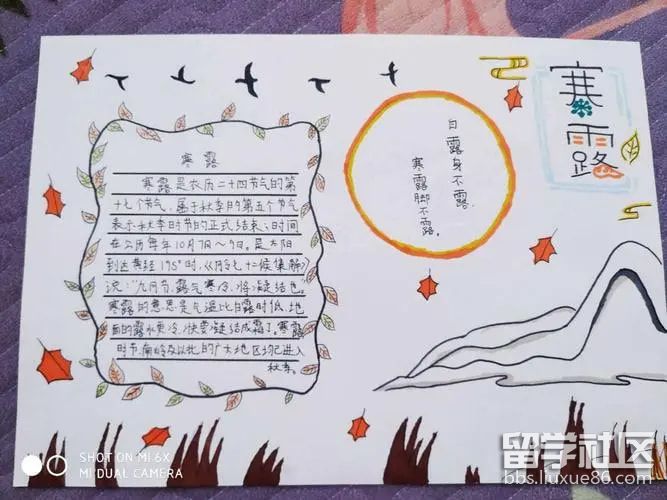 寒露
白露身不露,
寒露脚不露。
寒露
寒露是农历二十四节气的第
十七个节气,属于秋季的第五个节气
表示秋季时节的正式结束;时间
在公历每年10月7日～9日。是太阳
到达黄经195°时。《月令七十二候集解》
说:"九月节,露气寒冷,将凝结也。
寒露的意思是气温比白露时低,地
面的露水更冷,快要凝结成霜了。寒露
时节,南岭及以北的广大地区均已进入
秋季。
SHOT ON MI 6X
MI DUAL CAMERA
留学社区
bbs.liuxue86.com